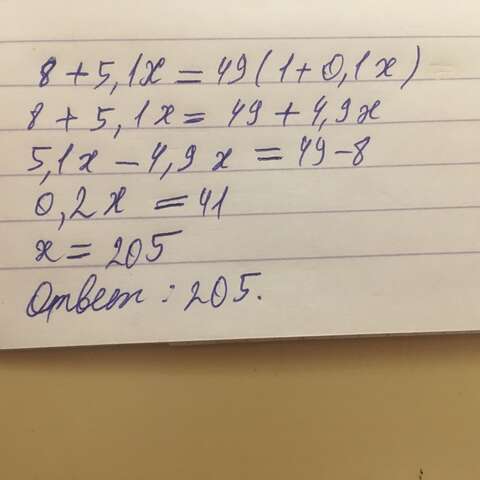 8 + 5,1x = 49(1+0,1x)
8 + 5,1x = 49 + 4,9x
5,1x - 4,9x = 49-8
0,2x = 41
x = 205
Ответ: 205.